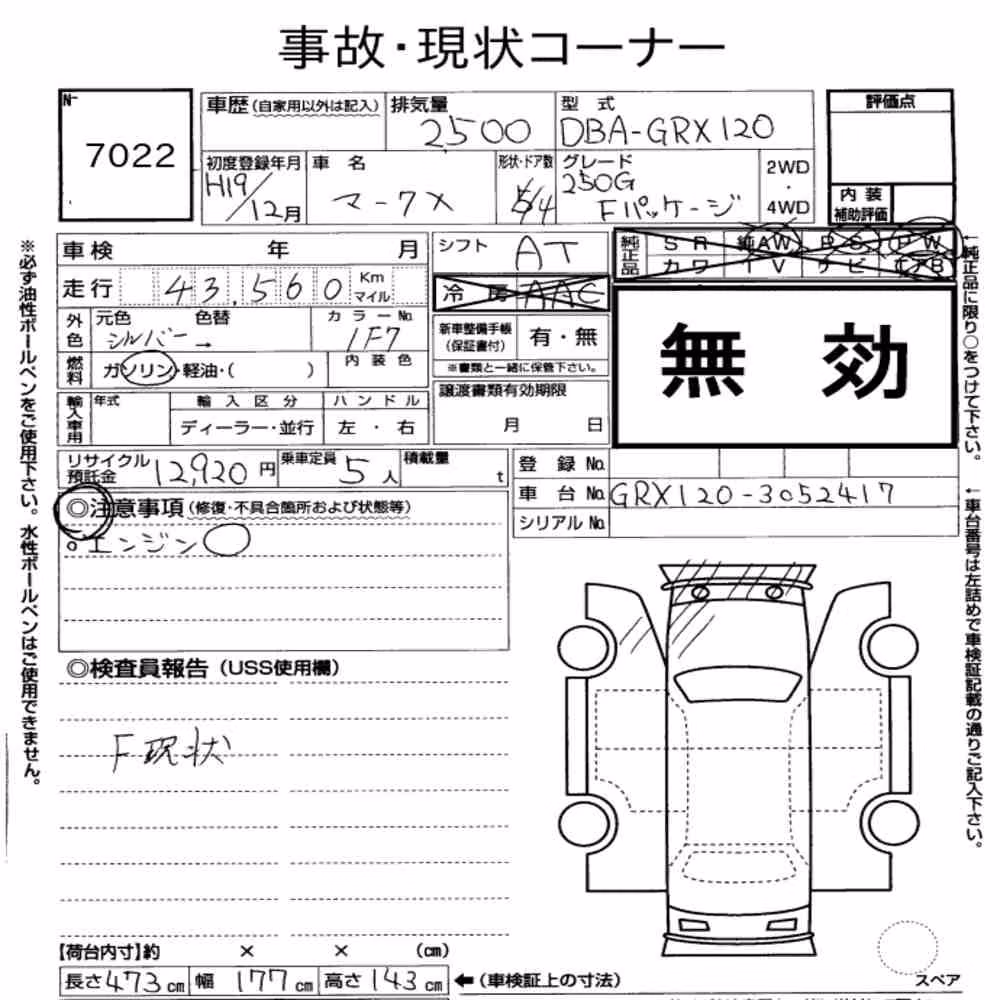 事故・現状コーナー
№
7022
車歴(自家用以外は記入)
排気量
2500
型 式
DBA-GRX120
評価点
初度登録年月
H19/12月
車 名
マークX
形状・ドア数
5/4
グレード
250G
Fパッケージ
2WD
・
4WD
内 装
補助評価
車検 年 月
シフト AT
純正品
S R 純AW P S P W
カワ T V ナビ エアB
走行 43,560 Km マイル
冷 房 AAC
外色
元色 色替
シルバー →
カラー№
1F7
新車整備手帳
(保証書付)
有・無
※書類と一緒に保管下さい。
無 効
燃料
ガソリン・軽油・( )
内 装 色
譲渡書類有効期限
月 日
輸入車用
年式
輸 入 区 分
ディーラー・並行
ハ ン ド ル
左 ・ 右
リサイクル
預託金 12,920 円
乗車定員 5 人
積載量 t
登 録 №
車 台 № GRX120-3052417
シリアル №
◎注意事項(修復・不具合箇所および状態等)
エンジン○
◎検査員報告(USS使用欄)
F現状
【荷台内寸】約 × × (cm)
長さ 473 cm 幅 177 cm 高さ 143 cm ←(車検証上の寸法)
スペア
※必ず油性ボールペンをご使用下さい。水性ボールペンはご使用できません。
←純正品に限り○をつけて下さい。
←車台番号は左詰めで車検証記載の通りご記入下さい。